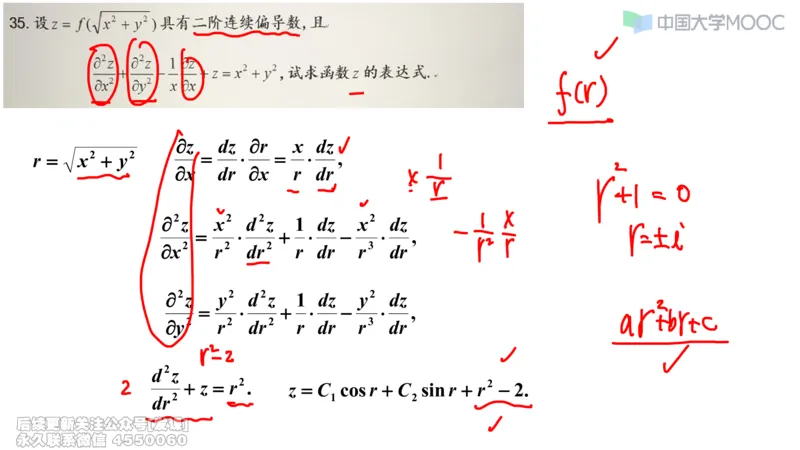 35. 设 z = f(√(x² + y²)) 具有二阶连续偏导数,且
∂²z/∂x² + ∂²z/∂y² − 1/x ∂z/∂x + z = x² + y², 试求函数 z 的表达式..
中国大学MOOC
f(r)
r = √(x² + y²)
∂z/∂x = dz/dr · ∂r/∂x = x/r · dz/dr,
x 1/r
∂²z/∂x² = x²/r² · d²z/dr² + 1/r · dz/dr − x²/r³ · dz/dr,
− 1/r² x/r
r² + 1 = 0
r = ± i
∂²z/∂y² = y²/r² · d²z/dr² + 1/r · dz/dr − y²/r³ · dz/dr,
ar² + br + c
r² − 2
2 d²z/dr² + z = r².
z = C₁ cos r + C₂ sin r + r² − 2.
永久联系微信 4550060